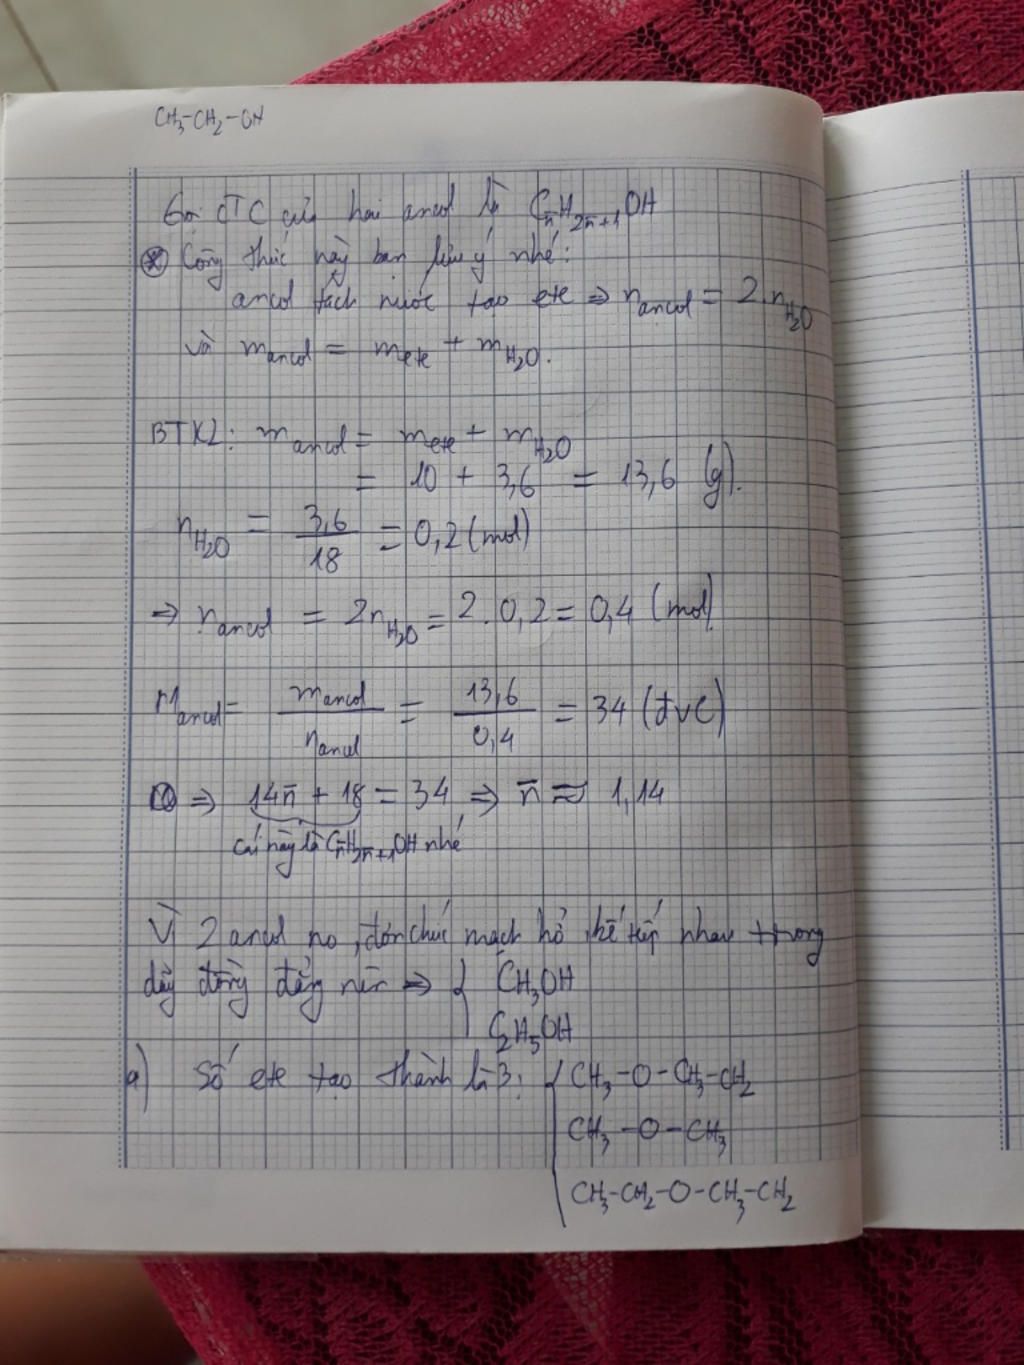 CH₃-CH₂-OH
Gọi CTC của hai ancol là Cn̄H2n̄+1OH
Công thức này bạn lưu ý nhé:
ancol tách nước tạo ete ⇒ nancol = 2.nH₂O
và mancol = mete + mH₂O.
BTKL: mancol = mete + mH₂O
= 10 + 3,6 = 13,6 (g).
nH₂O = 3,6/18 = 0,2 (mol)
⇒ nancol = 2nH₂O = 2.0,2 = 0,4 (mol)
Mancol = mancol/nancol = 13,6/0,4 = 34 (đvC)
⇒ 14n̄ + 18 = 34 ⇒ n̄ ≈ 1,14
cái này là Cn̄H2n̄+1OH nhé
Vì 2 ancol no, đơn chức mạch hở, kế tiếp nhau trong
dãy đồng đẳng nên ⇒ { CH₃OH
C₂H₅OH
a) Số ete tạo thành là 3: { CH₃-O-CH₃-CH₂
CH₃-O-CH₃
CH₃-CH₂-O-CH₃-CH₂